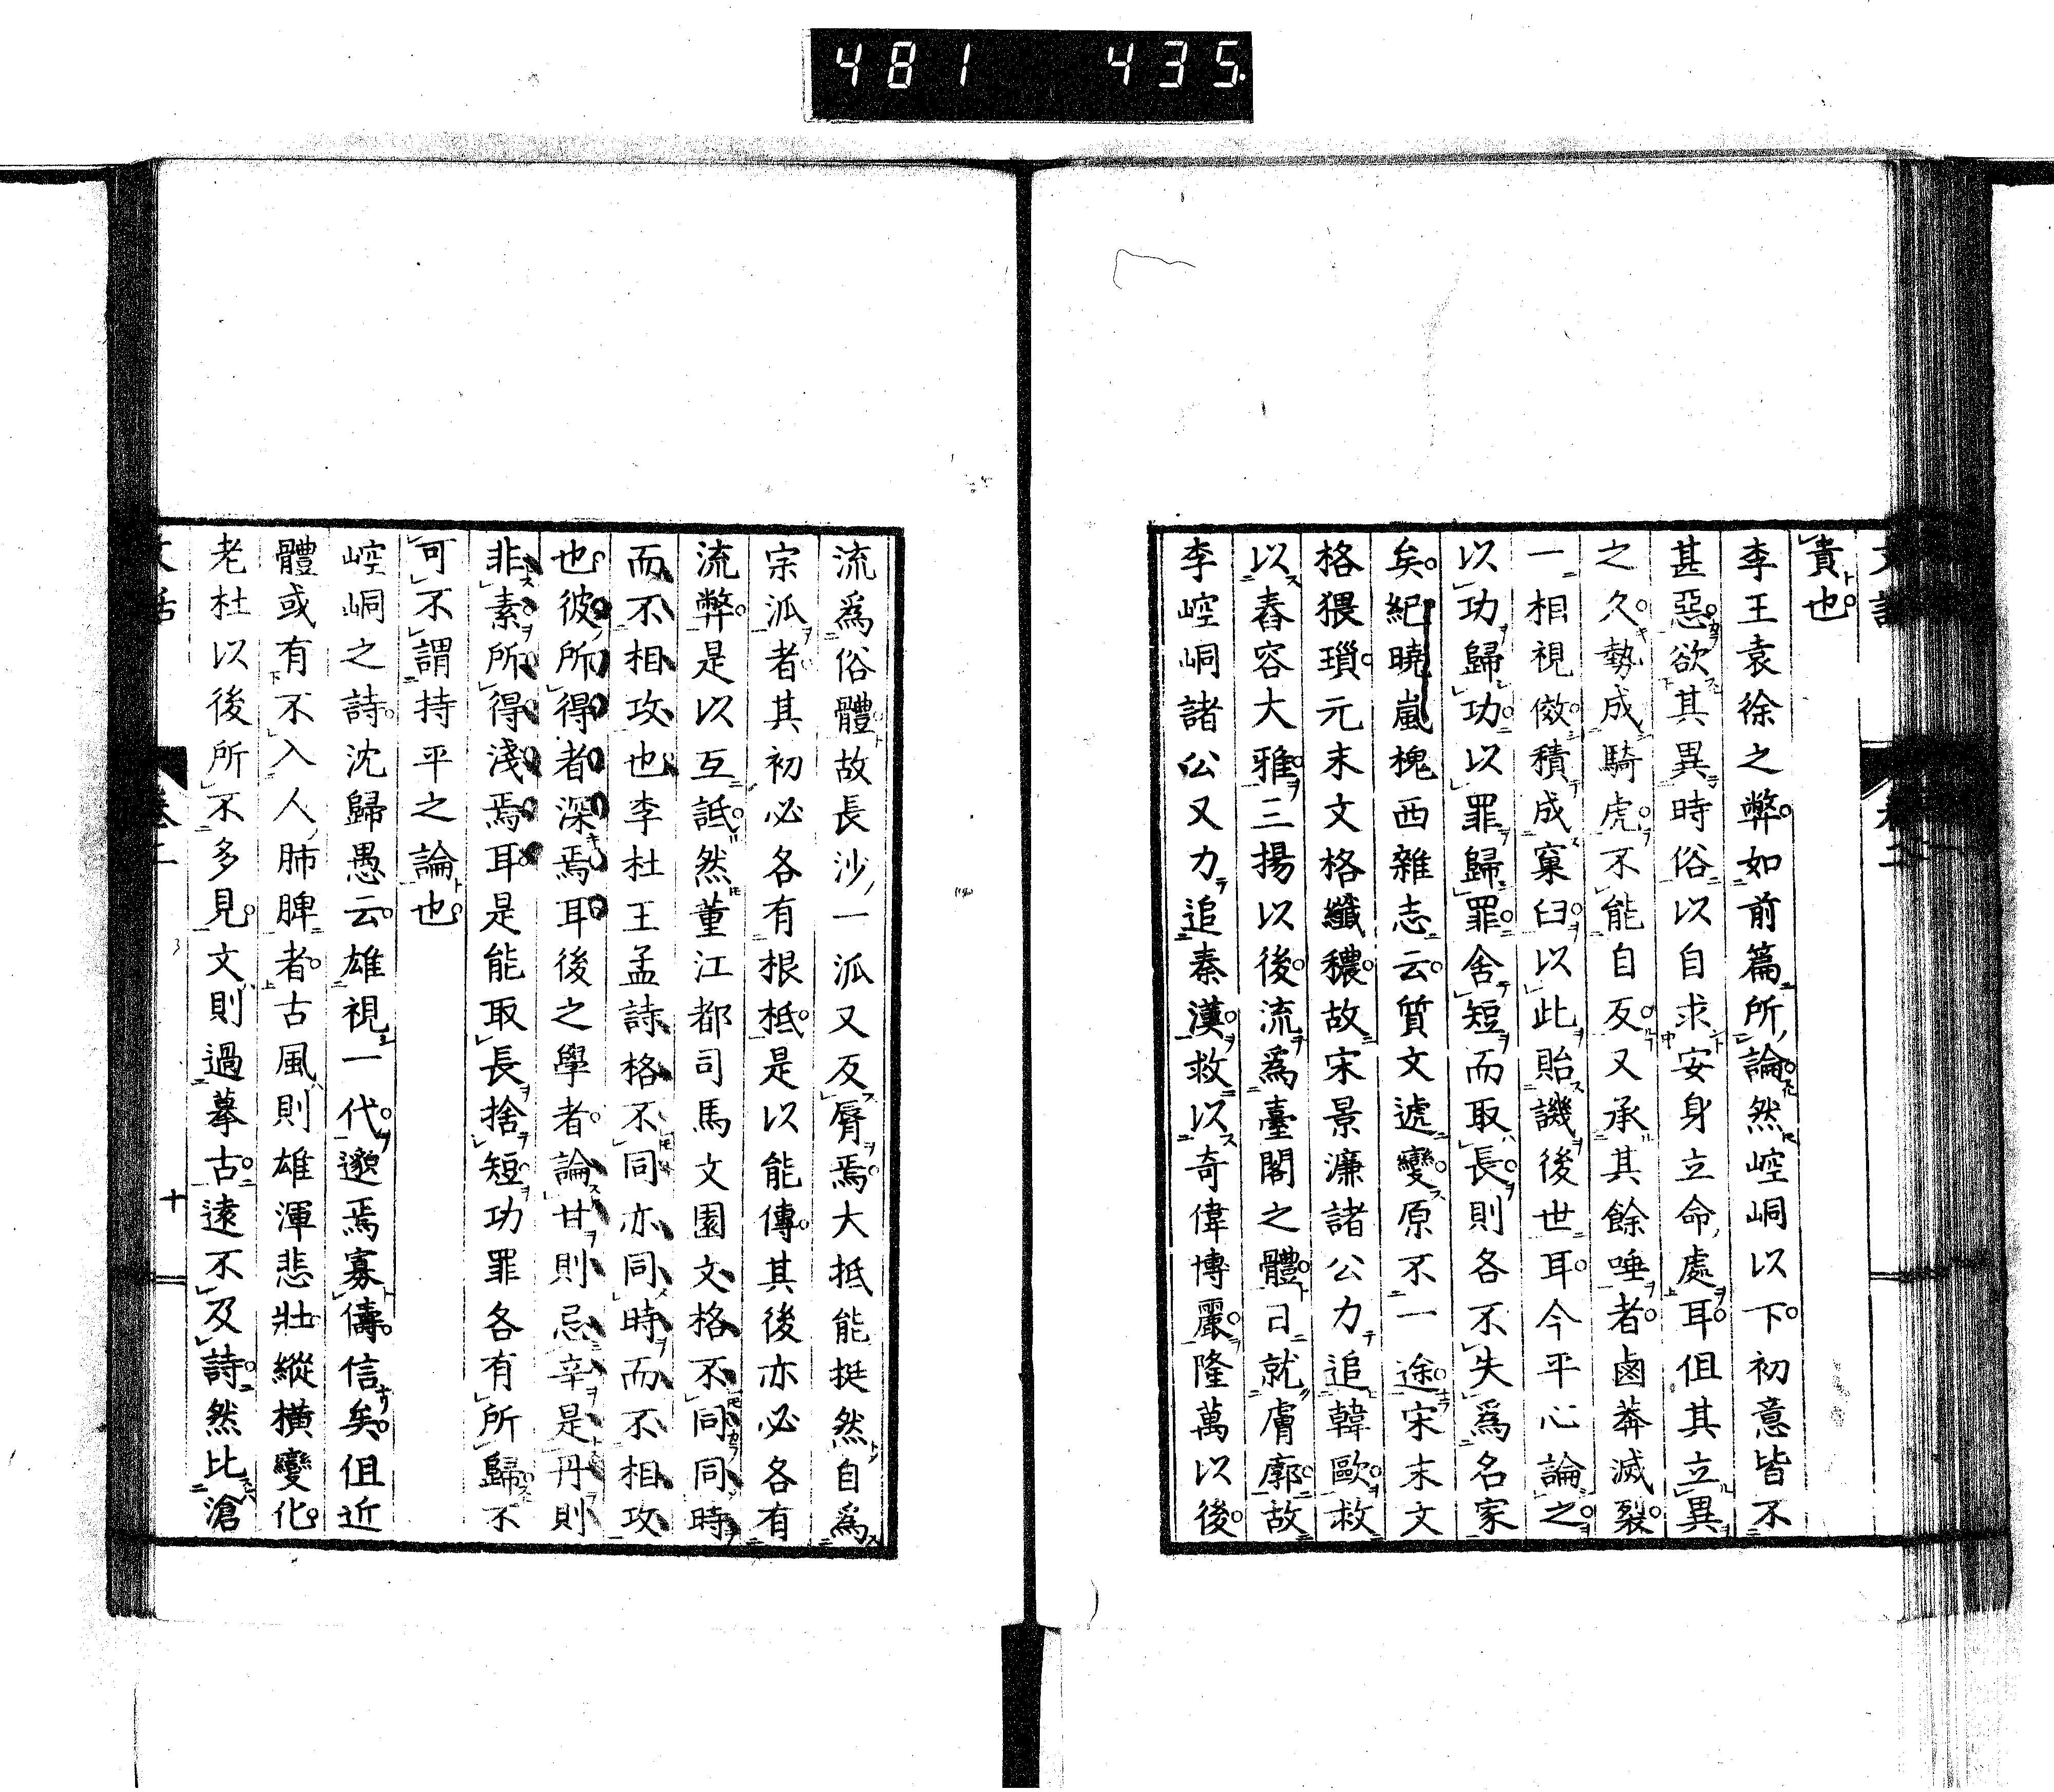 481 435
貴也
李王袁徐之弊如前篇所論然崆峒以下初意皆不
甚惡欲其異時俗以自求安身立命處耳伹其立異
之久勢成騎虎不能自反又承其餘唾者鹵莽滅裂
一相視傚積成窠臼以此貽譏後世耳今平心論之
以功歸功以罪歸罪舍短而取長則各不失爲名家
矣紀曉嵐槐西雜志云質文遞變原不一途宋末文
格猥瑣元末文格纖穠故宋景濂諸公力追韓歐救
以舂容大雅三揚以後流爲臺閣之體日就膚廓故
李崆峒諸公又力追秦漢救以奇偉博麗隆萬以後
流爲俗體故長沙一派又反脣焉大抵能挺然自爲
宗派者其初必各有根柢是以能傳其後亦必各有
流弊是以互詆然董江都司馬文園文格不同同時
而不相攻也李杜王孟詩格不同亦同時而不相攻
也彼所得者深焉耳後之學者論甘則忌辛是丹則
非素所得淺焉耳是能取長捨短功罪各有所歸不
可不謂持平之論也
崆峒之詩沈歸愚云雄視一代邈焉寡儔信矣伹近
體或有不入人肺脾者古風則雄渾悲壯縱橫變化
老杜以後所不多見文則過摹古遠不及詩然比滄
十